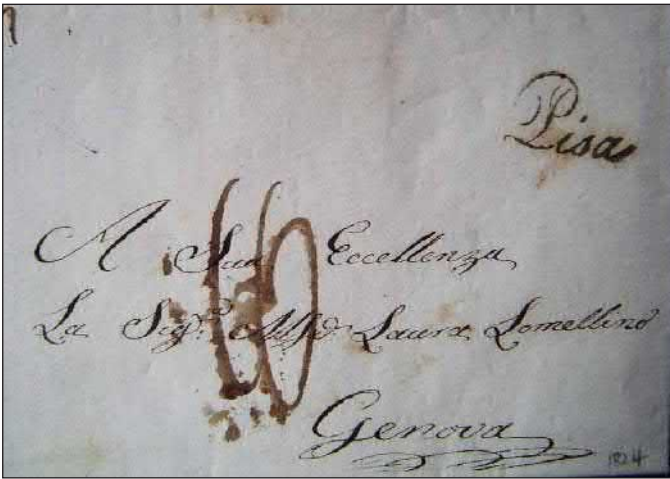 Pisa
A Sua Eccellenza
La Sig.ª Laura Lomellino
Genova
1824